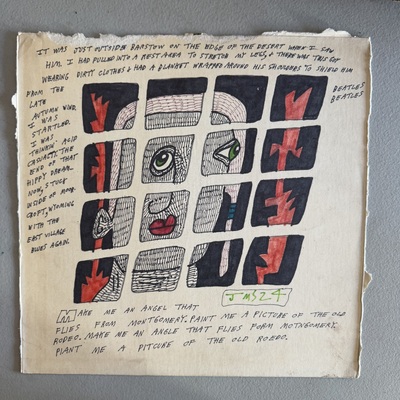 IT WAS JUST OUTSIDE BARSTOW ON THE EDGE OF THE DESERT WHEN I SAW
HIM. I HAD PULLED INTO A REST AREA TO STRETCH MY LEGS, & THERE WAS THIS GUY
WEARING DIRTY CLOTHES & HAD A BLANKET WRAPPED AROUND HIS SHOULDERS TO SHIELD HIM
FROM THE
LATE
AUTUMN WIND.
I WAS
STARTLED.
I WAS
THINKIN' ACID
CASUALTY. THE
END OF THAT
HIPPY DREAM.
NOW, STUCK
INSIDE OF
CROFT, WYOMING
WITH THE
EAST VILLAGE
BLUES AGAIN.
BEATLES
BEATLES
JMSZ4
MAKE ME AN ANGEL THAT
FLIES FROM MONTGOMERY. PAINT ME A PICTURE OF THE OLD
RODEO. MAKE ME AN ANGLE THAT FLIES FORM MOTNGOMERY.
PLANT ME A PITCURE OF THE OLD ROMEO.